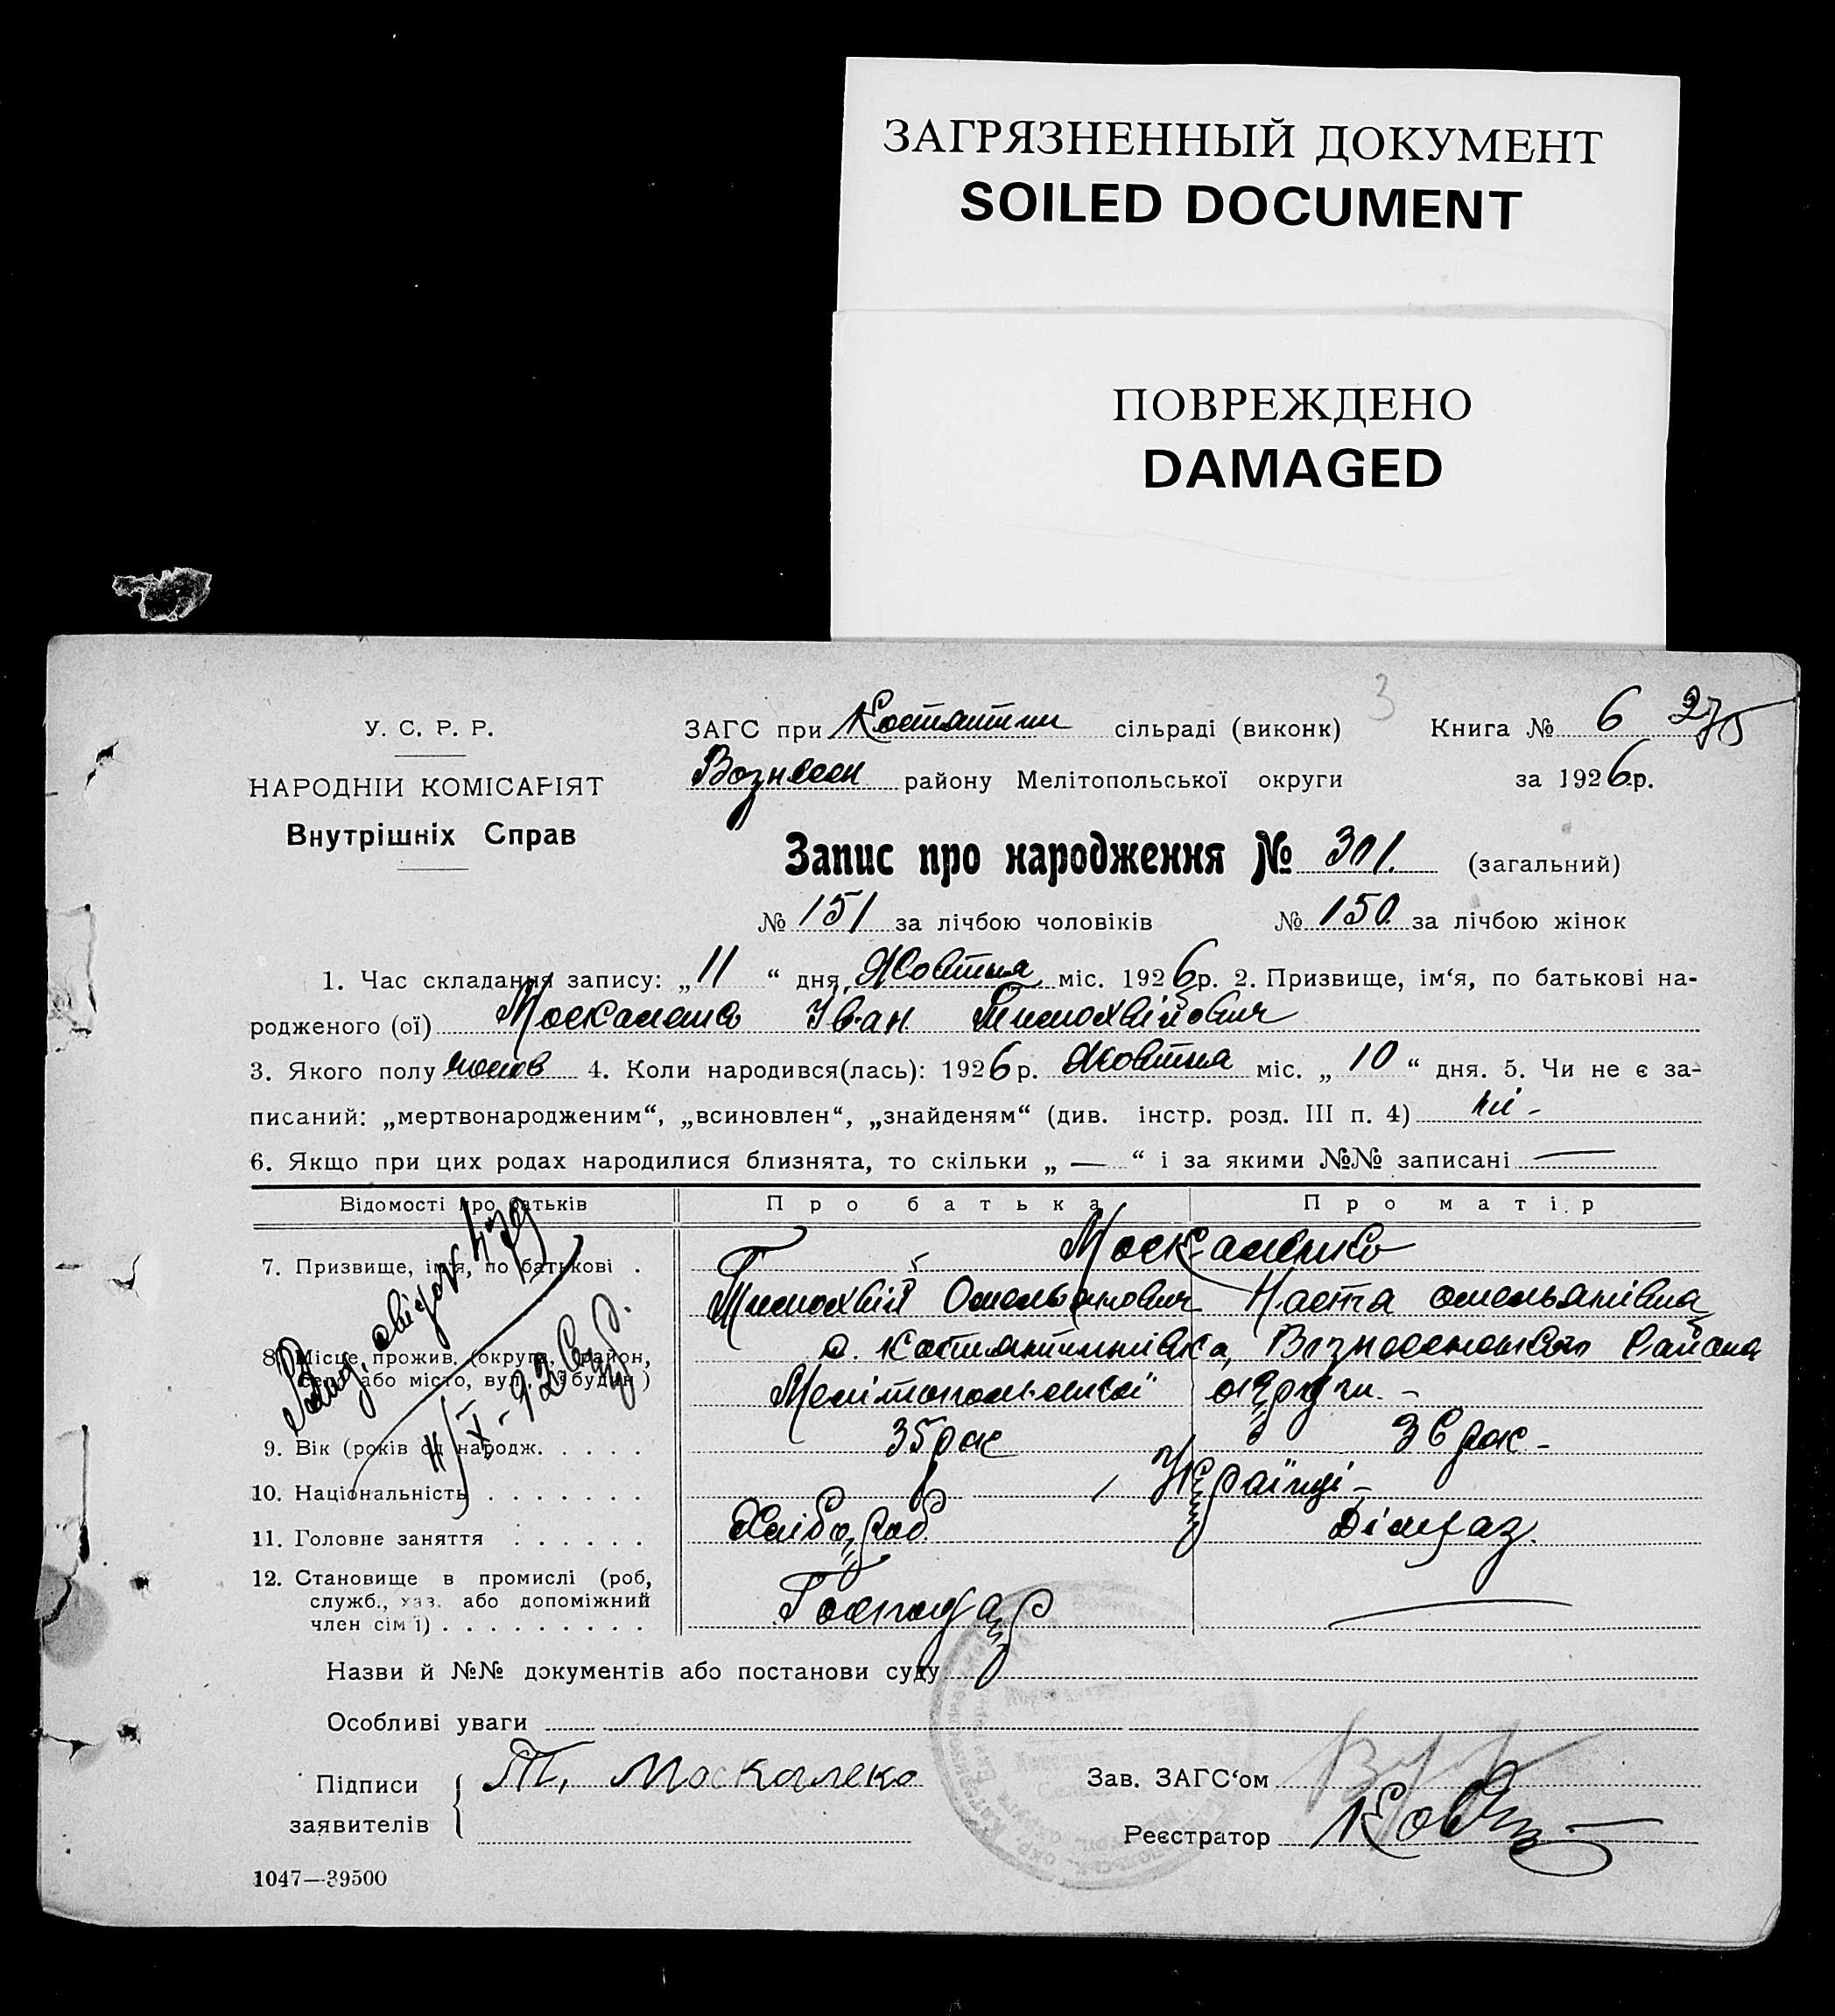 ЗАГРЯЗНЕННЫЙ ДОКУМЕНТ
SOILED DOCUMENT
ПОВРЕЖДЕНО
DAMAGED
3
У. С. Р. Р.
НАРОДНІЙ КОМІСАРІЯТ
Внутрішніх Справ
ЗАГС при Костянтин сільраді (виконк) Книга № 6 275
Вознесен району Мелітопольської округи за 1926 р.
Запис про народження № 301. (загальний)
№ 151 за лічбою чоловіків № 150 за лічбою жінок
1. Час складання запису: „ 11 “ дня, Жовтня міс. 1926 р. 2. Призвище, ім‘я, по батькові на-
родженого (ої) Москаленко Іван Тимохвійович
3. Якого полу чолов 4. Коли народився(лась): 1926 р. Жовтня міс. „ 10 “ дня. 5. Чи не є за-
писаний: „мертвонародженим“, „всиновлен“, „знайденям“ (див. інстр. розд. III п. 4) ні -
6. Якщо при цих родах народилися близнята, то скільки „ — “ і за якими №№ записані —
Відомості про батьків Про батька Про матір
7. Призвище, ім‘я, по батькові . Москаленко
Тимохвій Омельянович Наста омельянівна
8. Місце прожив. (округа, район, с. Костянтинівка, Вознесенського Района
село або місто, вул., № будин) Мелітопольської округи. -
9. Вік (років од народж. . . . . . 35 рок 36 рок -
10. Національність . . . . . . . Українці -
11. Головне заняття . . . . . . Хлібороб Дімгаз.
12. Становище в промислі (роб, служб., хаз. або допоміжний член сім‘ї) . . . . . . . . . Господар —
Вид. свідоч 479
11/X - 92 6 р.
Назви й №№ документів або постанови суду
Особливі уваги
Підписи заявителів { Т. Москалеко
Зав. ЗАГС‘ом
Реєстратор
1047—39500